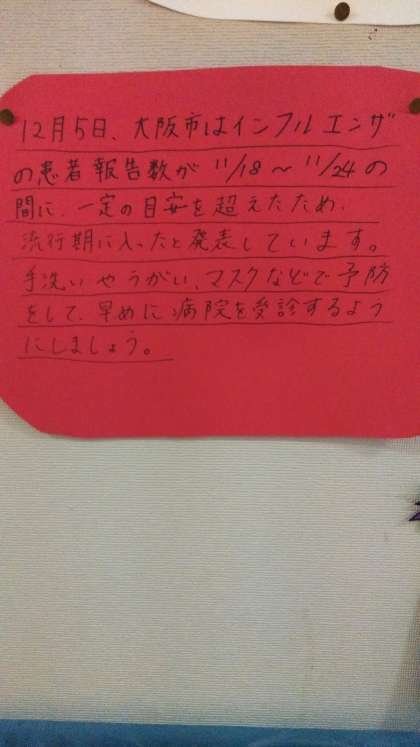 12月5日、大阪市はインフルエンザ
の患者報告数が 11/18~11/24の
間に、一定の目安を超えたため、
流行期に入ったと発表しています。
手洗いやうがい、マスクなどで予防
をして、早めに病院を受診するよう
にしましょう。